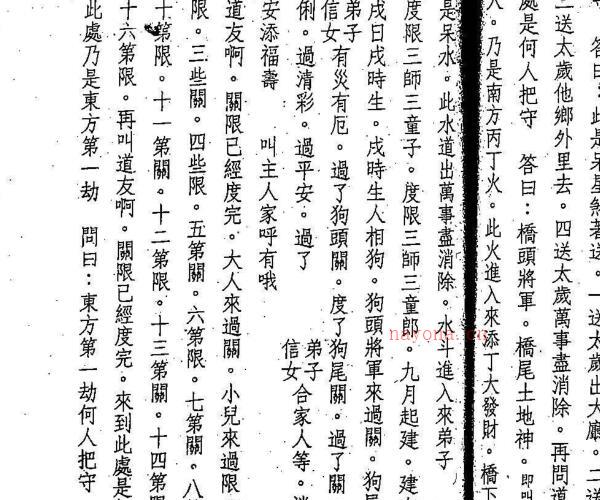 答曰：此是呆星煞著送。一送太歲出大廳。二送
三送太歲他鄉外里去。四送太歲萬事盡消除。再問道
處是何人把守　答曰：橋頭將軍。橋尾土地神。即叫
人。乃是南方丙丁火。此火進入來添丁大發財。橋下
是呆水。此水道出萬事盡消除。水斗進入來弟子
度限三師三童子。度限三師三童郎。九月起建。建
戌日戌時生。戌時生人相狗。狗頭將軍來過關。狗尾
弟子信女　有災有厄。過了狗頭關。度了狗尾關。過了關
俐。過清彩。過平安。過了　弟子信女　合家人等。消
安添福壽　叫主人家呼有哦
道友啊。關限已經度完。大人來過關。小兒來過限
限。三些關。四些限。五第關。六第限。七第關。八
十第限。十一第關。十二第限。十三第關。十四第
十六第限。再叫道友啊。關限已經度完。來到此處是
此處乃是東方第一劫　問曰：東方第一劫何人把守
nayona.cn